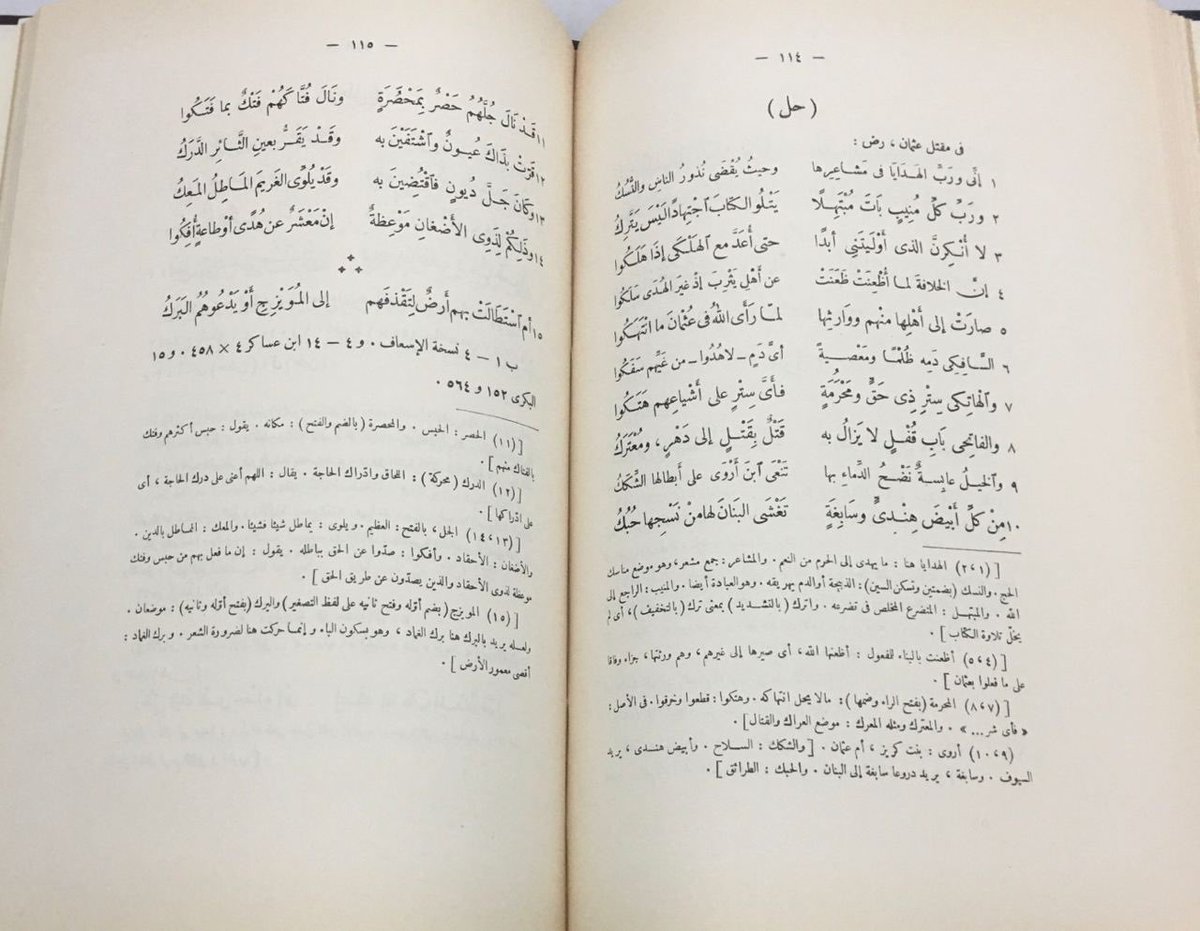 — ١١٤ —
( حل )
فى مقتل عثمان ، رض :
١ إنِّى وربِّ الهَدَايَا فى مَشَاعِرِها وحيثُ يُقْضَى نُذورُ الناسِ والنُّسُكُ
٢ وربِّ كلِّ مُنِيبٍ بَاتَ مُبْتَهِلًا يَتْلُو الكتابَ اجْتِهادًا لَيْسَ يَتَّرِكُ
٣ لا أُنْكِرنَّ الذى أَوْلَيْتَنِى أبدًا حتى أُعَدَّ مع الهَلْكَى إذَا هَلَكُوا
٤ إنّ الخلافة لما أُظْعِنَتْ ظَعَنَتْ عن أَهْلِ يَثْرِبَ إذْ غيرَ الهُدَى سَلَكُوا
٥ صارَتْ إلى أَهْلِها منهم ووَارِثِها لمَّا رَأَى اللهُ فى عُثْمَانَ ما انْتَهَكُوا
٦ السَّافِكِى دَمِه ظُلْمًا ومَعْصِيةً أىَّ دَمٍ ــ لاهُدُوا ــ من غَيِّهم سَفَكُوا
٧ والْهَاتِكِى سِتْرِ ذِى حَقٍّ ومَحْرُمَةٍ فأَىَّ سِتْرٍ على أَشْيَاعِهم هَتَكُوا
٨ والفاتِحِى بَابِ قُفْلٍ لا يَزالُ به قَتْلٌ بِقَتْلٍ إلى دَهْرٍ ، ومُعْتَرَكُ
٩ والخيلُ عابِسةٌ نَضْحُ الدِّماءِ بها تَنْعَى ابنَ أَرْوَى على أبطالها الشِّكَكُ
١٠ مِنْ كلِّ أبيضَ هِنْدىٍّ وسَابِغَةٍ تَغْشَى البَنَانَ لها مِنْ نَسْجِها حُبُكُ
[ (١،٢) الهدايا هنا : ما يهدى إلى الحرم من النعم . والمشاعر : جمع مشعر ، وهو موضع مناسك
الحج . والنسك ( بضمتين وتسكن السين ) : الذبيحة أو الدم يهريقه . وهو العبادة أيضا . والمنيب : الراجع إلى
الله . والمبتهل : المتضرع المخلص فى تضرعه . واترك ( بالتشديد ) بمعنى ترك ( بالتخفيف ) ، أى لم
يخلّ تلاوة الكتاب ] .
[ (٤،٥) أظعنت بالبناء للفعول : أظعنها الله ، أى صيرها إلى غيرهم ، وهم ورثتها ، جزاء وفاقا
على ما فعلوا بعثمان ] .
[ (٧،٨) المحرمة ( بفتح الراء وضمها ) : ما لا يحل انتهاكه . وهتكوا : قطعوا وخرقوا . فى الأصل :
« فأى شر ... » . والمعترك ومثله المعرك : موضع العراك والقتال ] .
(٩،١٠) أروى : بنت كريز ، أم عثمان . [ والشكك : السلاح . وأبيض هندى ، يريد
السيوف . وسابغة ، يريد دروعا سابغة إلى البنان . والحبك : الطرائق ] .
— ١١٥ —
١١ قَدْ نَالَ جُلَّهُمُ حَصْرٌ بِمَحْضَرَةٍ ونَالَ فُتَّاكَهُمْ فَتْكٌ بما فَتَكُوا
١٢ قرَّتْ بذَاكَ عُيونٌ واشْتَفَيْنَ به وقَدْ يَقَرُّ بعينِ الثَّائِرِ الدَّرَكُ
١٣ وكَانَ جَلَّ دُيونٍ فاقْتُضِينَ به وقَدْ يُلَوِّى الغَرِيمَ المَاطِلُ المَعِكُ
١٤ وذَلِكُمْ لِذَوِى الأَضْغانِ مَوْعِظةٌ إنْ مَعْشَرٌ عن هُدًى أوْ طاعةٍ أُفِكُوا
١٥ أم استَطَالَتْ بهم أَرضٌ لِتَقْذفَهم إلى المُوَيْزِجِ أوْ يَدْعُوهُمُ البَرَكُ
ب ١ – ٤ نسخة الإسعاف . و ٤ – ١٤ ابن عساكر ٤ × ٤٥٨ . و ١٥
البكرى ١٥٢ و ٥٦٤ .
[ (١١) الحصر : الحبس . والمحصرة ( بالضم والفتح ) : مكانه . يقول : حبس أكثرهم وفتك
بالفتاك منهم ] .
[ (١٢) الدرك ( محركة ) : اللحاق وادراك الحاجة . يقال : اللهم أعنى على درك الحاجة ، أى
على ادراكها ] .
[ (١٣،١٤) الجل ، بالفتح : العظيم . ويلوى : يماطل شيئا فشيئا . والمعك : المماطل بالدين .
والأضغان : الأحقاد . وأفكوا : صدّوا عن الحق بباطله . يقول : إن ما فعل بهم من حبس وفتك
موعظة لذوى الأحقاد والذين يصدّون عن طريق الحق ] .
[ (١٥) المويزج ( بضم أوّله وفتح ثانيه على لفظ التصغير ) والبرك ( بفتح أوّله وثانيه ) : موضعان .
ولعله يريد بالبرك هنا برك الغماد ، وهو بسكون الباء وإنما حركت هنا لضرورة الشعر . وبرك الغماد :
أقصى معمور الأرض ] .